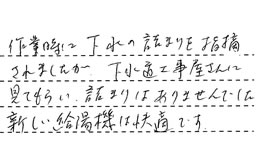 作業時に下水の詰まりを指摘
されましたが、下水道工事屋さんに
見てもらい、詰まりはありませんでした
新しい給湯機は快適です